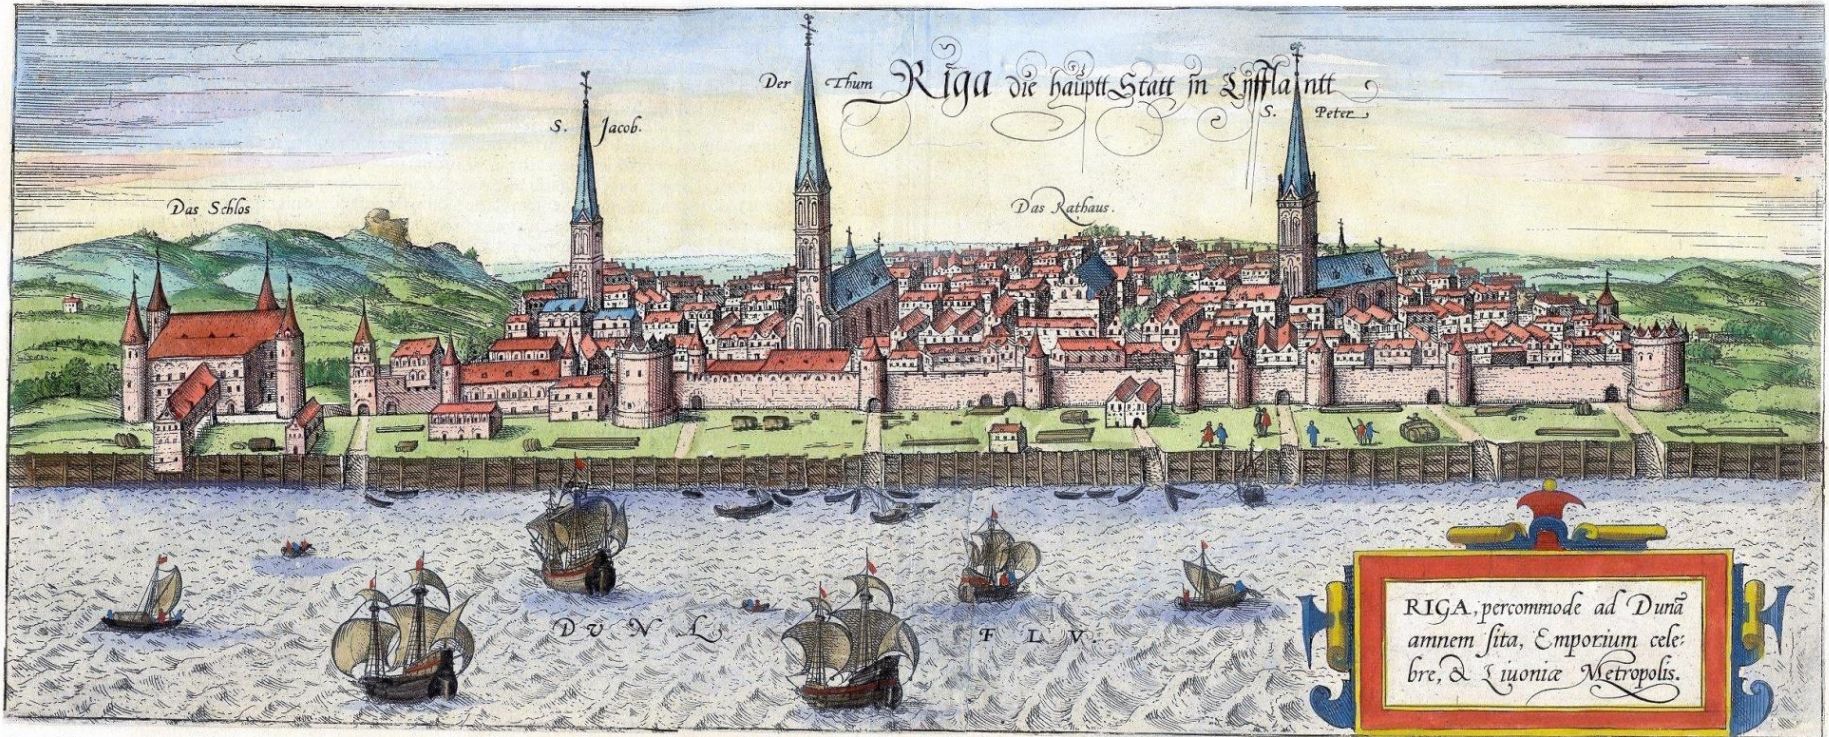 Der Thum
Riga die hauptt Statt in Lyfflantt
S. Jacob.
S. Peter
Das Schlos
Das Rathaus.
DVNÆ FLV.
RIGA, percommode ad Dunā
amnem ſita, Emporium cele:
bre, & Liuoniæ Metropolis.